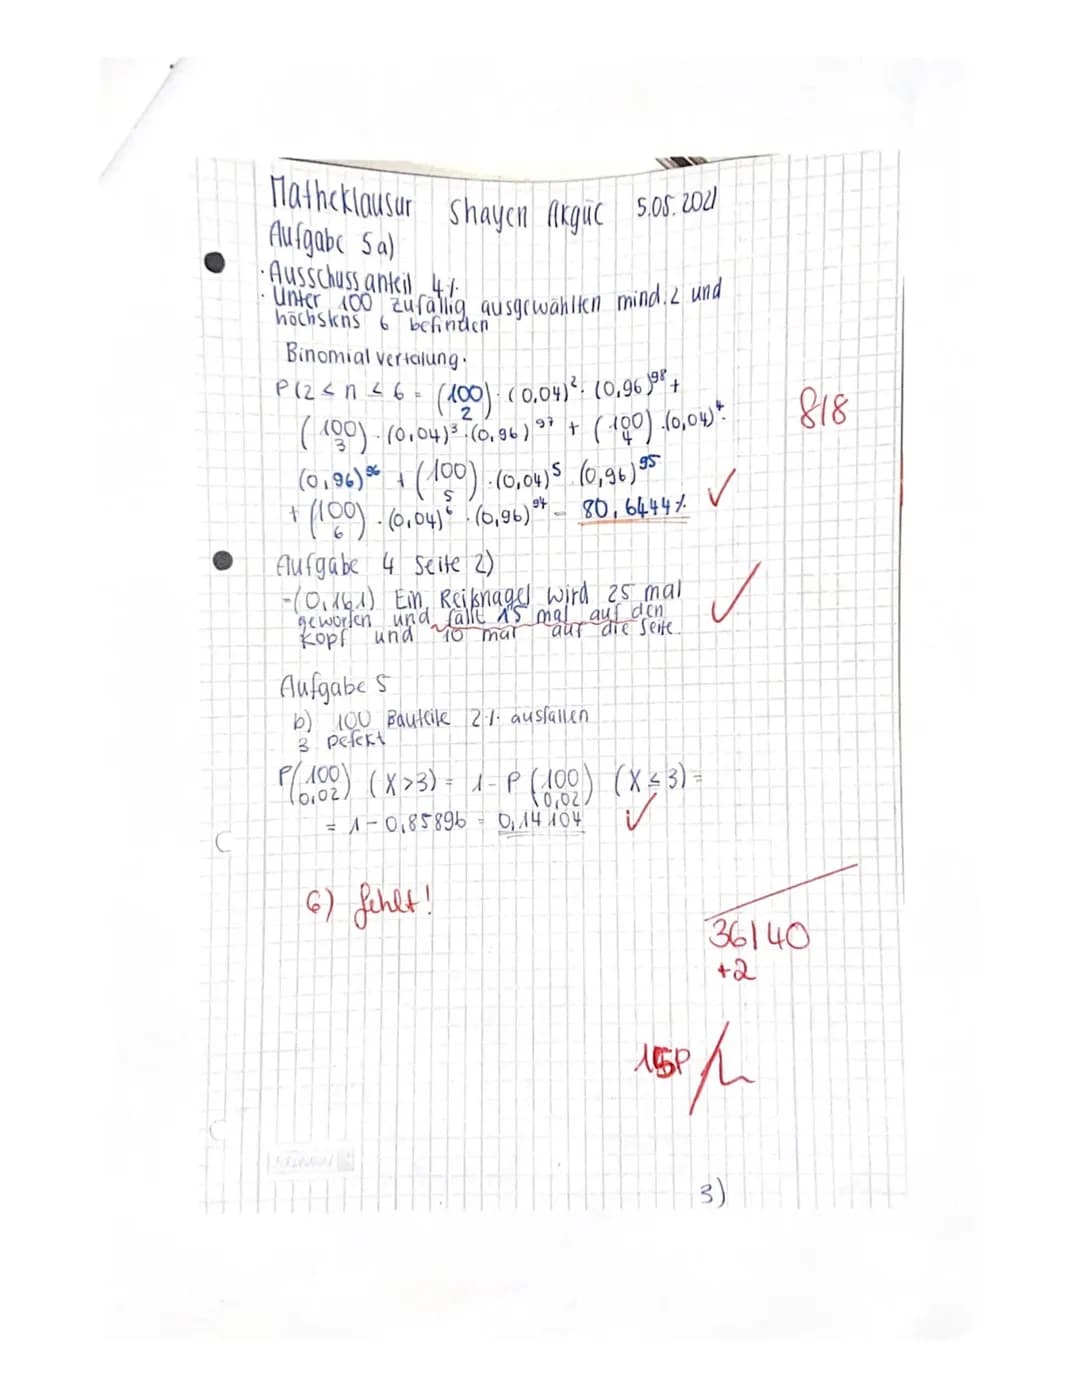 Matheklausur Shayen Akgüc 5.05.2021
Aufgabe 5a)
· Ausschussanteil 4%
· Unter 100 zufällig ausgewählten mind. 2 und
höchstens 6 befinden
Binomialvertalung.
P(2 ≤ n ≤ 6 = (100 2) · (0,04)² · (0,96)⁹⁸ +
(100 3) · (0,04)³ · (0,96)⁹⁷ + (100 4) · (0,04)⁴ ·
8/8
(0,96)⁹⁶ + (100 5) · (0,04)⁵ (0,96)⁹⁵
+ (100 6) · (0,04)⁶ · (0,96)⁹⁴ = 80,6444% ✓
Aufgabe 4 Seite 2)
-(0,161) Ein Reißnagel wird 25 mal
geworfen und fällt 15 mal auf den
Kopf und 10 mal auf die Seite. ✓
Aufgabe 5
b) 100 Bauteile 2% ausfallen
3 Defekt
P(100 0,02) (X>3) = 1-P(100 0,02) (X≤3) =
= 1-0,85896 = 0,14104 ✓
6) fehlt!
36/40
+2
15P
3)